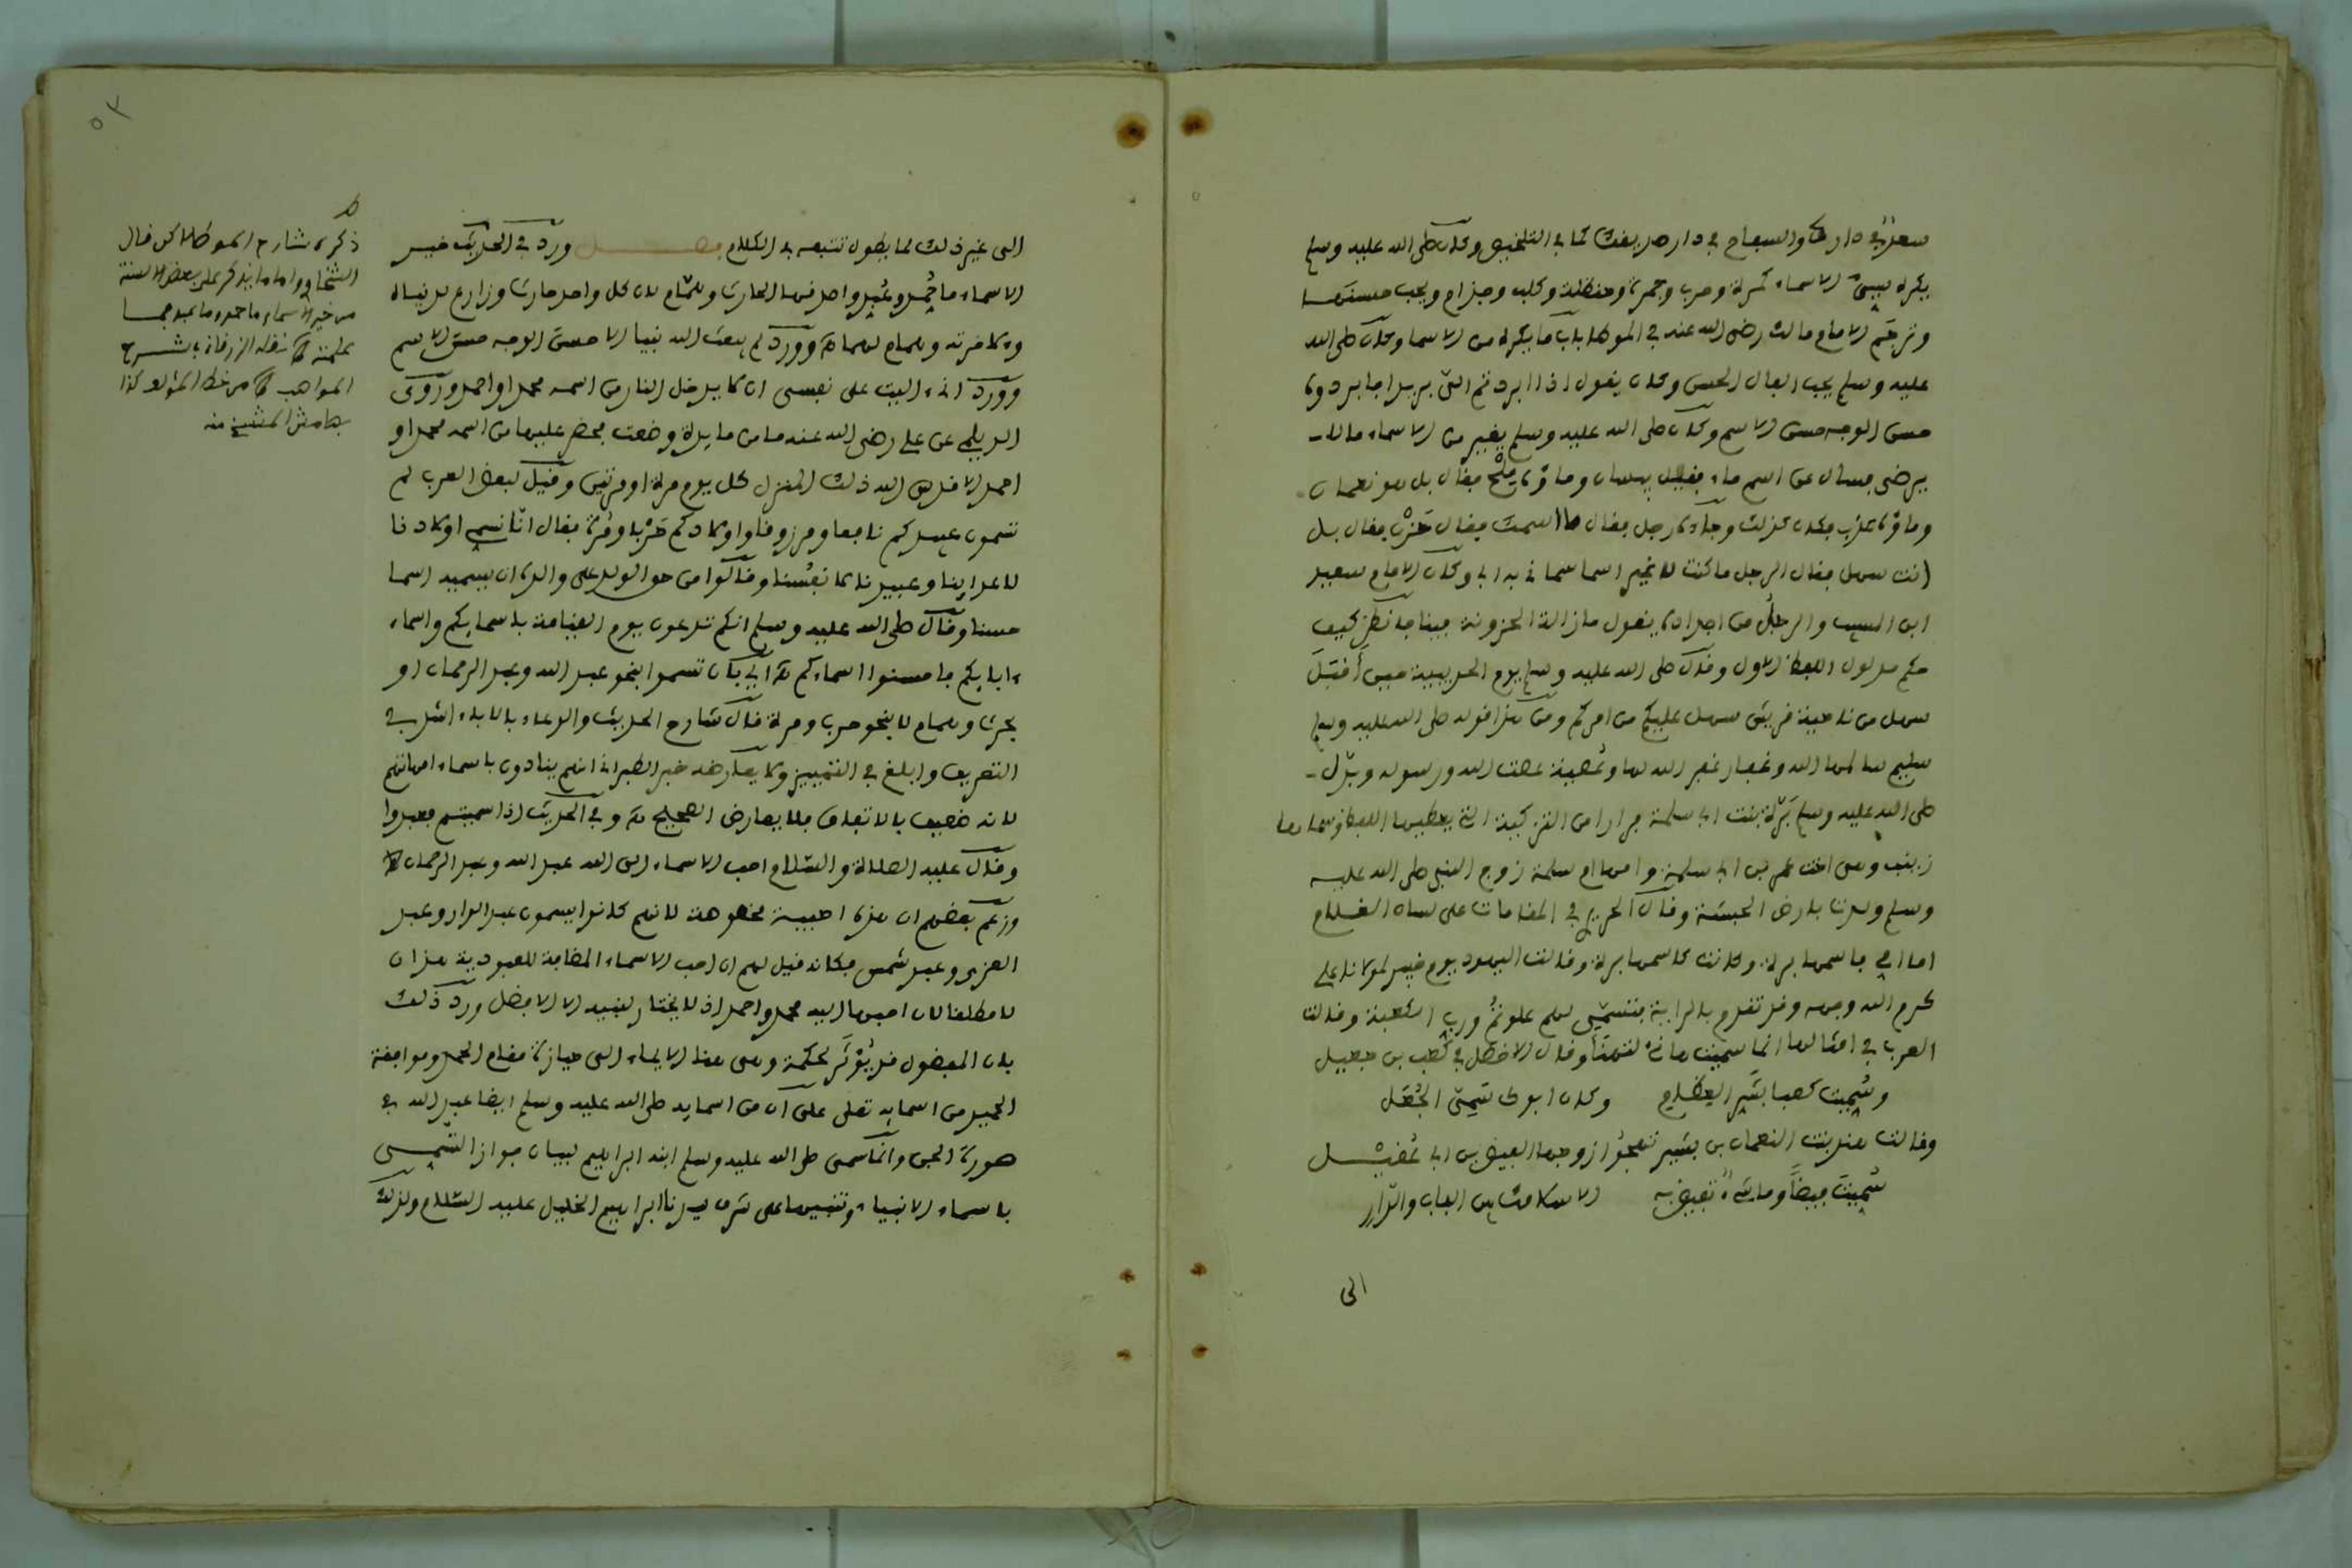 سعد في دارك والسفاح في دار صديقك كما في التلخيص وكان صلى الله عليه وسلم
يكره سيئ الاسماء كمرة وحرب وجمرة وحنظلة وكلب وحزام ويحب حسنها
وترجم الامام مالك رضي الله عنه في الموطا باب ما يكره من الاسما وكان صلى الله
عليه وسلم يحب الفال الحسن وكان يقول اذا ابردتم الي بريدا فابردوه
حسن الوجه حسن الاسم وكان صلى الله عليه وسلم يغير من الاسماء ما لا
يرضى فسال عن اسم ماء فقيل بيسان وماؤه ملح فقال بل هو نعمان
وماؤه عذب فكان كذلك وجاءه رجل فقال ما اسمك فقال حزن فقال بل
انت سهل فقال الرجل ما كنت لاغير اسما سماني به ابي وكان الامام سعيد
ابن المسيب والرجل من اجداده يقول ما زالت الحزونة فينا فانظر كيف
حكم مدلول اللفظ الاول وقال صلى الله عليه وسلم يوم الحديبية حين أقبل
سهل من ناحية قريش سهل عليكم من امركم ومن هذا قوله صلى الله عليه وسلم
سليم سالمها الله وغفار غفر الله لها وعصية عصت الله ورسوله وبدل
صلى الله عليه وسلم برة بنت ابي سلمة فرارا من التزكية التي يعطيها اللفظ وسماها
زينب وهي اخت عمر بن ابي سلمة وامها ام سلمة زوج النبي صلى الله عليه
وسلم ولدت بارض الحبشة وقال الحريري في المقامات على لسان الغلام
اما امي فاسمها برة وكانت كاسمها برة وقالت اليهود يوم خيبر لمولانا علي
كرم الله وجهه وقد تقدم بالراية فتسمى لهم علوتم ورب الكعبة وقالت
العرب في امثالها انما سميت هانئا لتهنا وقال الاخطل في كعب بن جعيل
وسميت كعبا بشر العظام وكان ابوك يسمى الجعل
وقالت هند بنت النعمان بن بشير تهجو زوجها الفيض بن ابي عقيل
سميت فيضا وما شيء تفيض به الا سلاحك بين الباب والدار
الى
الى غير ذلك لما يطول تتبعه في الكلام فصل ورد في الحديث خير
الاسماء ما حمد وعبد واصدقها الحارث وهمام لان كل واحد حارث وزارع لدنياه
ولاخرته وهمام لهما وورد لم يبعث الله نبيا الا حسن الوجه حسن الاسم
وورد اني اليت على نفسي ان لا يدخل النار من اسمه محمد او احمد وروى
الديلمي عن علي رضي الله عنه ما من مايدة وضعت فحضر عليها من اسمه محمد او
احمد الا قدس الله ذلك المنزل كل يوم مرة او مرتين وقيل لبعض العرب لم
تسمون عبيدكم نافعا ومرزوقا واولادكم حربا ومرة فقال انا نسمي اولادنا
لاعدائنا وعبيدنا لانفسنا وقالوا من حق الولد على والده ان يسميه اسما
حسنا وقال صلى الله عليه وسلم انكم تدعون يوم القيامة باسمايكم واسماء
ءابايكم فاحسنوا اسماءكم اي بان تسموا بنحو عبد الله وعبد الرحمان او
بحرث وهمام لا بنحو حرب ومرة قال شارح الحديث والدعاء بالاباء اشد في
التعريف وابلغ في التمييز ولا يعارضه خبر الطبراني انهم ينادون باسماء امهاتهم
لانه ضعيف بالاتفاق فلا يعارض الصحيح وفي الحديث اذا سميتم فعبدوا
وقال عليه الصلاة والسلام احب الاسماء الى الله عبد الله وعبد الرحمان
وزعم بعضهم ان هذه احبية مخصوصة لانهم كانوا يسمون عبد الدار وعبد
العزى وعبد شمس فكانه قيل لهم ان احب الاسماء المضافة للعبودية هذان
لا مطلقا لان احبها اليه محمد واحمد اذ لا يختار لنبيه الا الافضل ورد ذلك
بان المفضول قد يؤثر لحكمة وهي هنا الايماء الى حيازته مقام الحمد وموافقة
الحميد من اسمايه تعلى على ان من اسمايه صلى الله عليه وسلم ايضا عبد الله في
سورة الجن وانما سمى صلى الله عليه وسلم ابنه ابراهيم لبيان جواز التسمي
باسماء الانبياء وتنبيها على شرف سيدنا ابراهيم الخليل عليه السلام ولذلك
ذكره شارح الموطا لكن قال
السخاوي واما ما يذكر على بعض الالسنة
من خير الاسماء ما حمد وما عبد فما
علمته كما نقله الزرقاني بشرح
المواهب من خط المؤلف كذا
بهامش المنتسخ منه